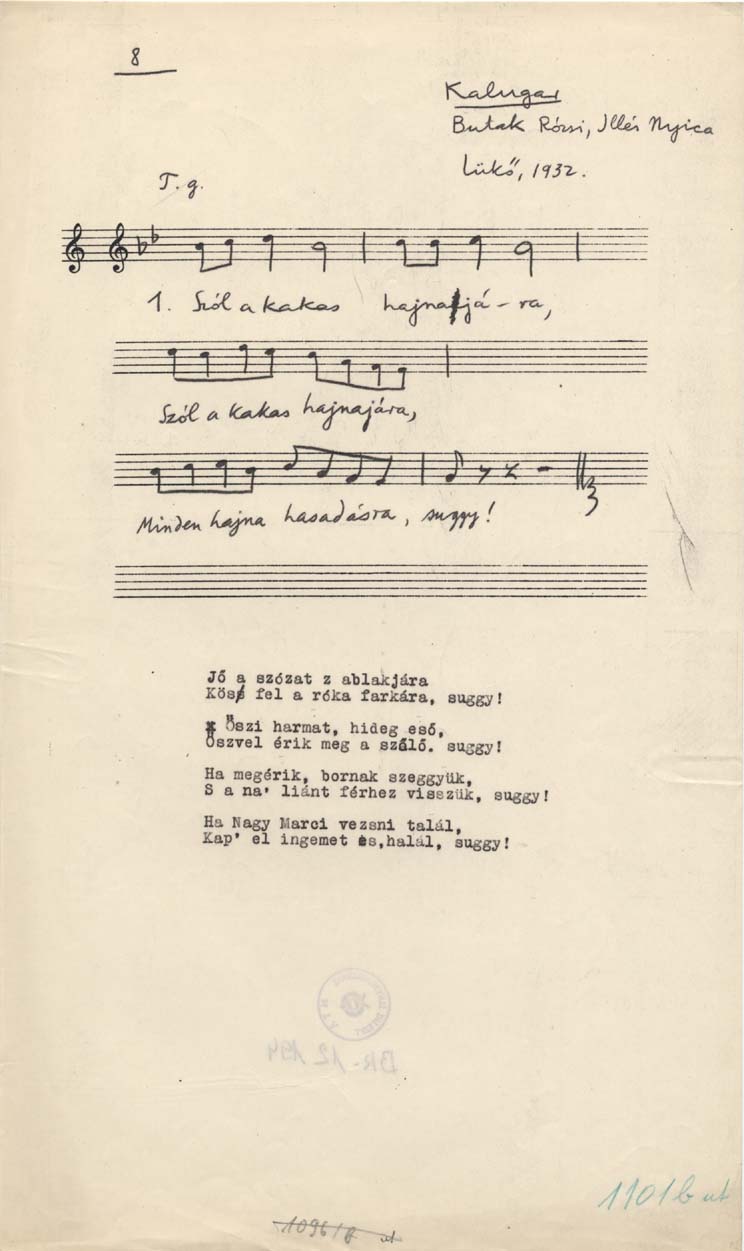 8
Kalugar
Butak Rózsi, Illés Nyica
Lükő, 1932.
T. g.
1. Szól a kakas hajnaljá - ra,
Szól a kakas hajnajára,
Minden hajna hasadásra, suggy!
Jő a szózat z ablakjára
Köss fel a róka farkára, suggy!
Őszi harmat, hideg eső,
Őszvel érik meg a szőlő. suggy!
Ha megérik, bornak szeggyük,
S a na' liánt férhez visszük, suggy!
Ha Nagy Marci vezsni talál,
Kap' el ingemet és,halál, suggy!
BR-12 194
1101b ut
1096/b ut